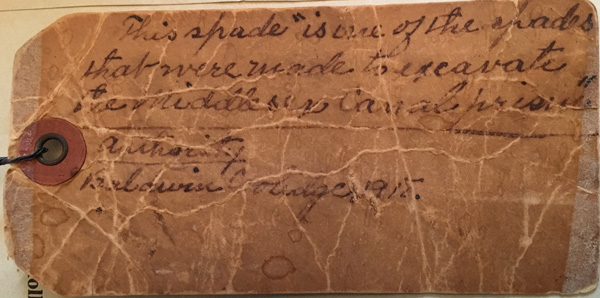 "This spade" is one of the spades
that were made to excavate
the Middlesex Canal prism"
Authority
Baldwin 1915.
oll